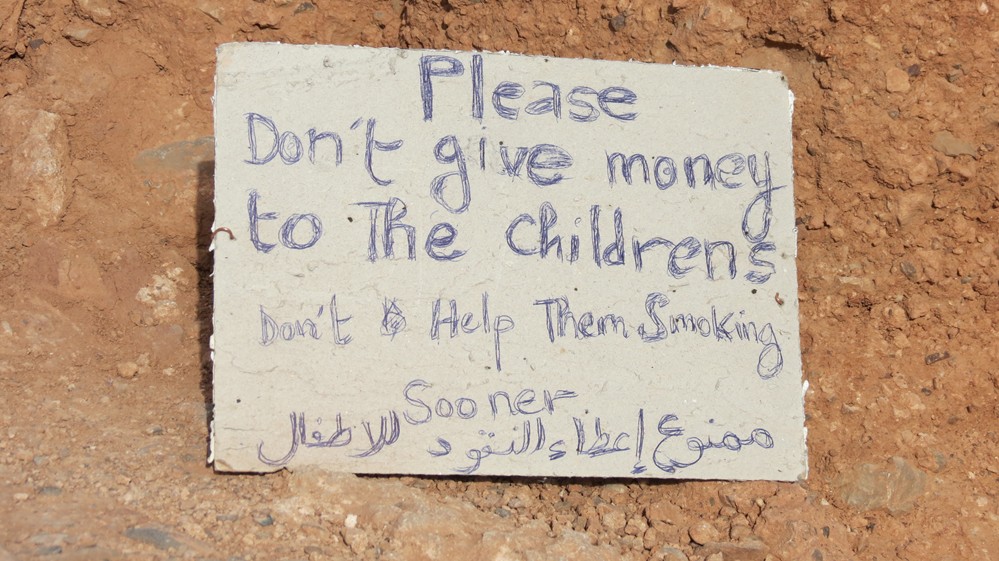 Please
Don't give money
to The Childrens
Don't Help Them Smoking
Sooner
ممنوع إعطاء النقود للاطفال